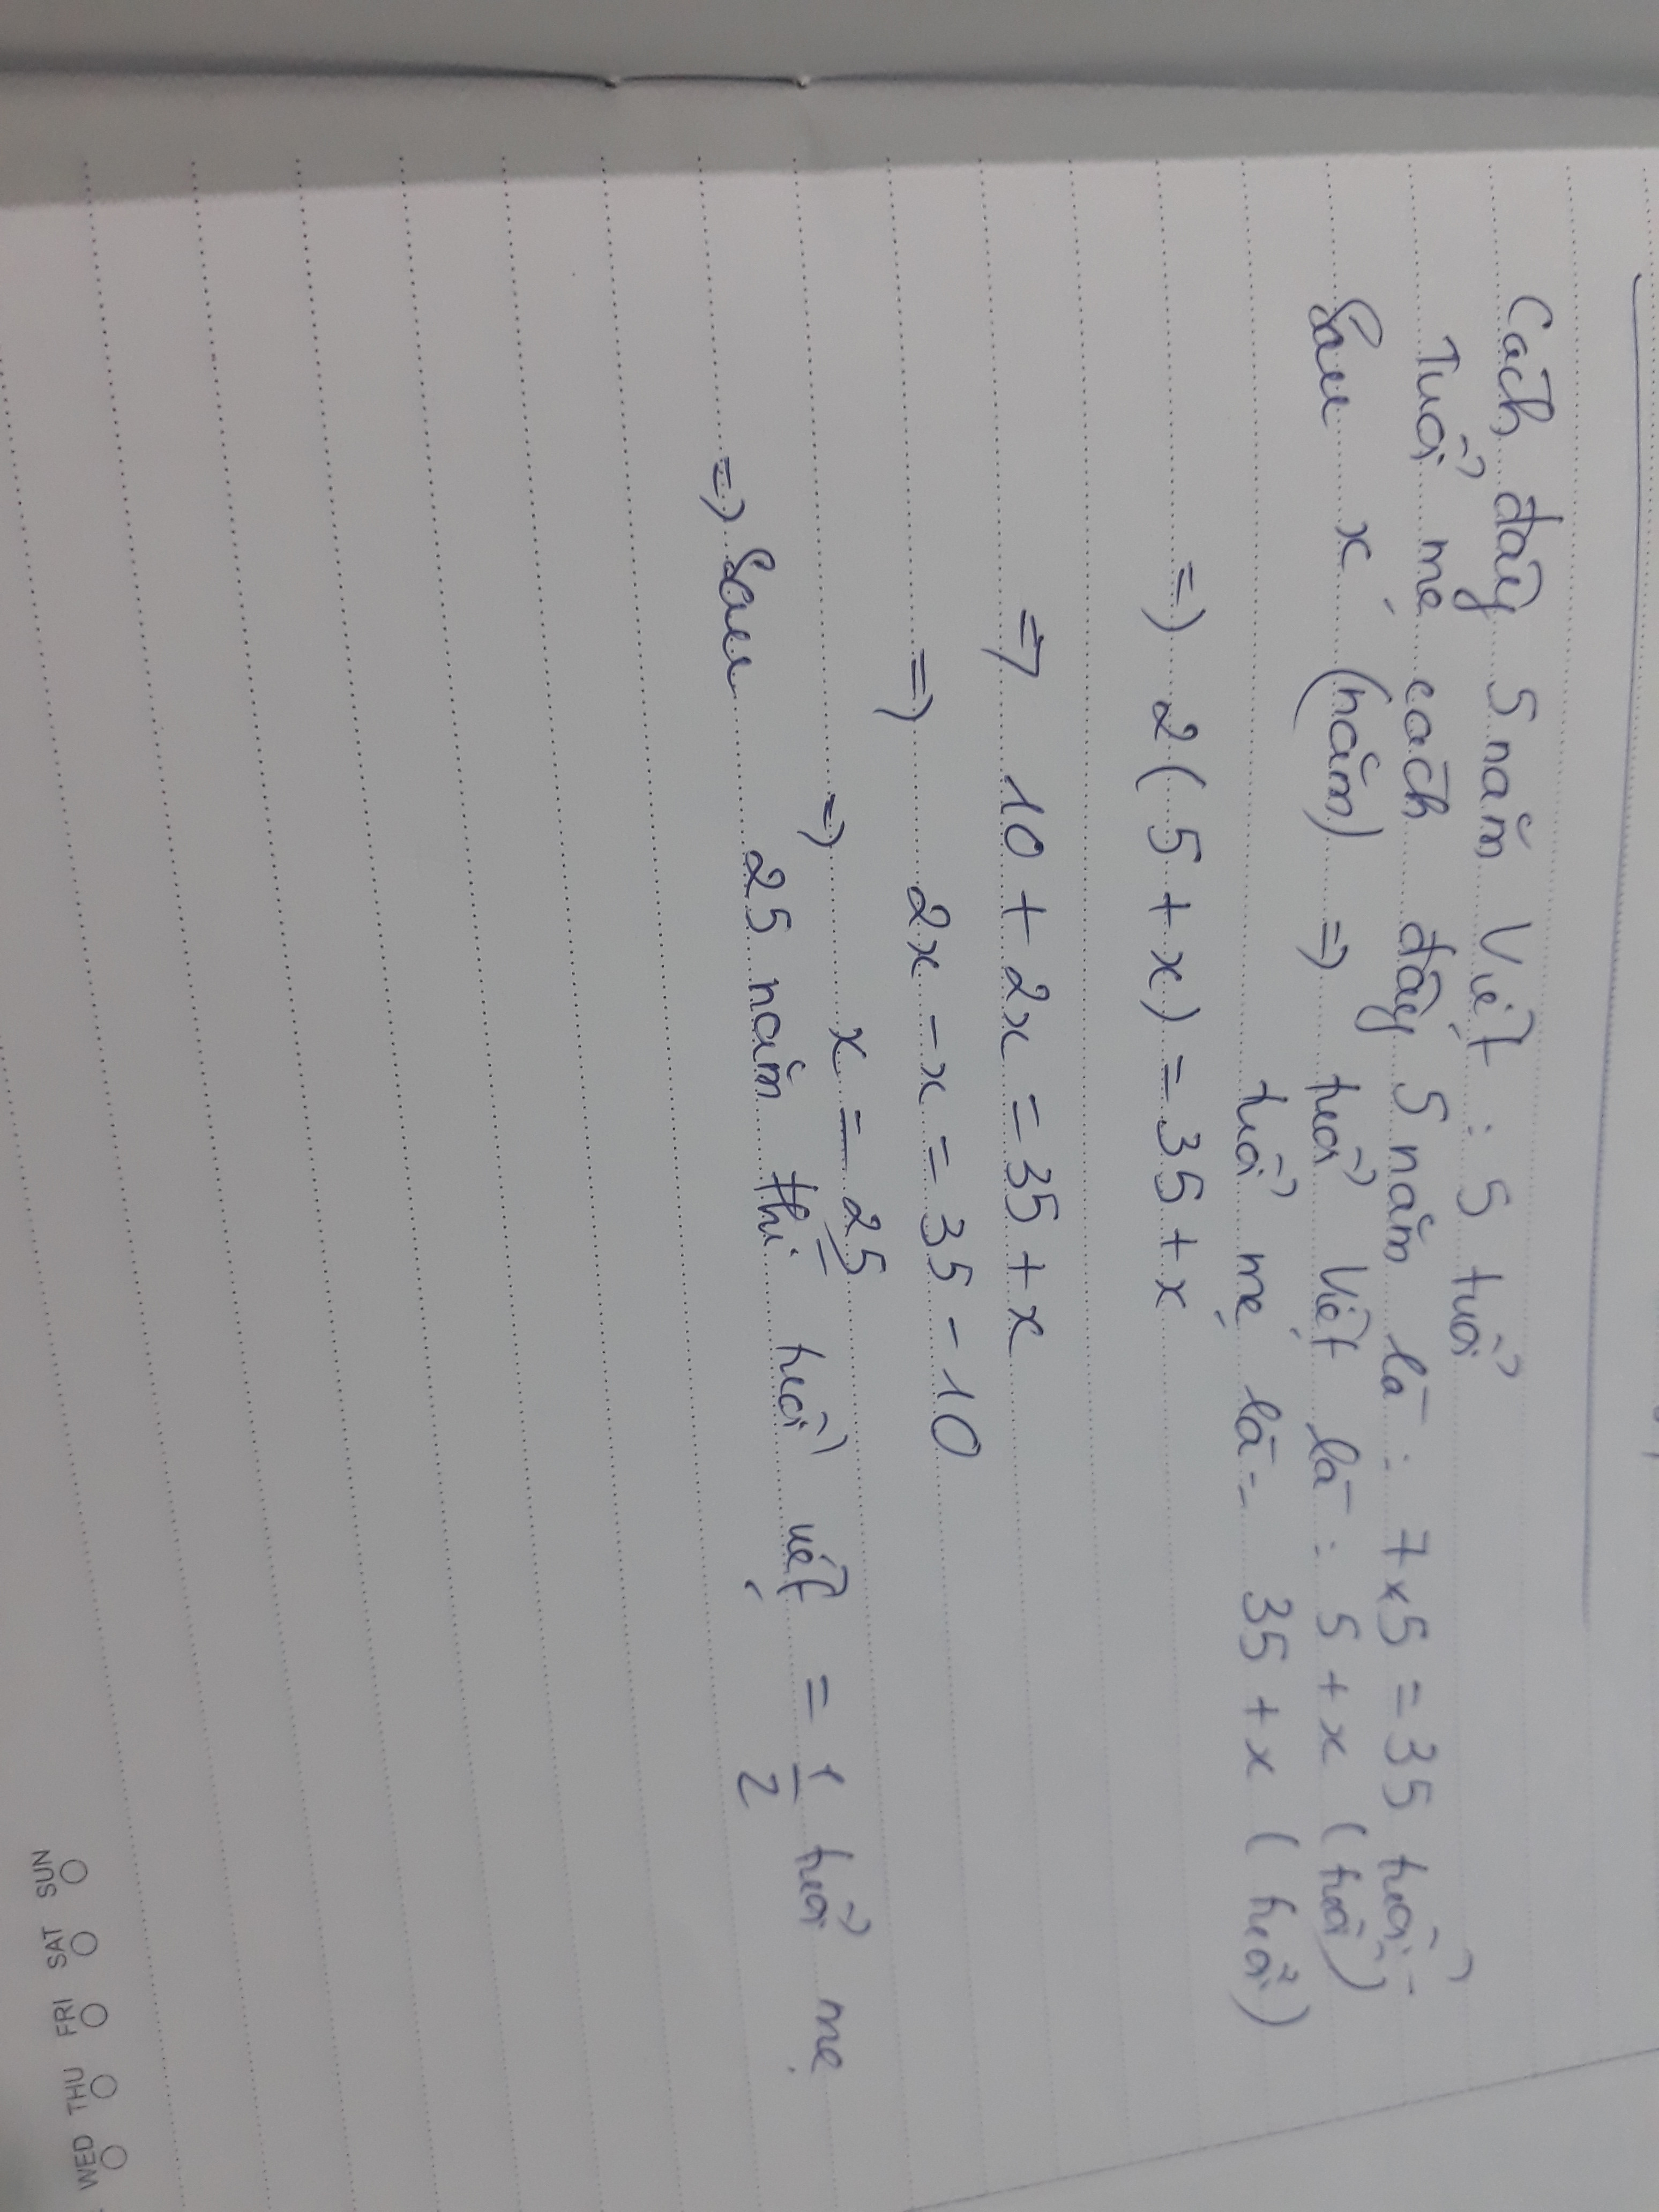 Cách đây 5 năm Việt : 5 tuổi
Tuổi mẹ cách đây 5 năm là : 7 x 5 = 35 tuổi
Sau x (năm) => tuổi Việt là : 5 + x (tuổi)
tuổi mẹ là : 35 + x (tuổi)
=> 2(5 + x) = 35 + x
=> 10 + 2x = 35 + x
=> 2x - x = 35 - 10
=> x = 25
=> Sau 25 năm thì tuổi việt = 1/2 tuổi mẹ
WED THU FRI SAT SUN